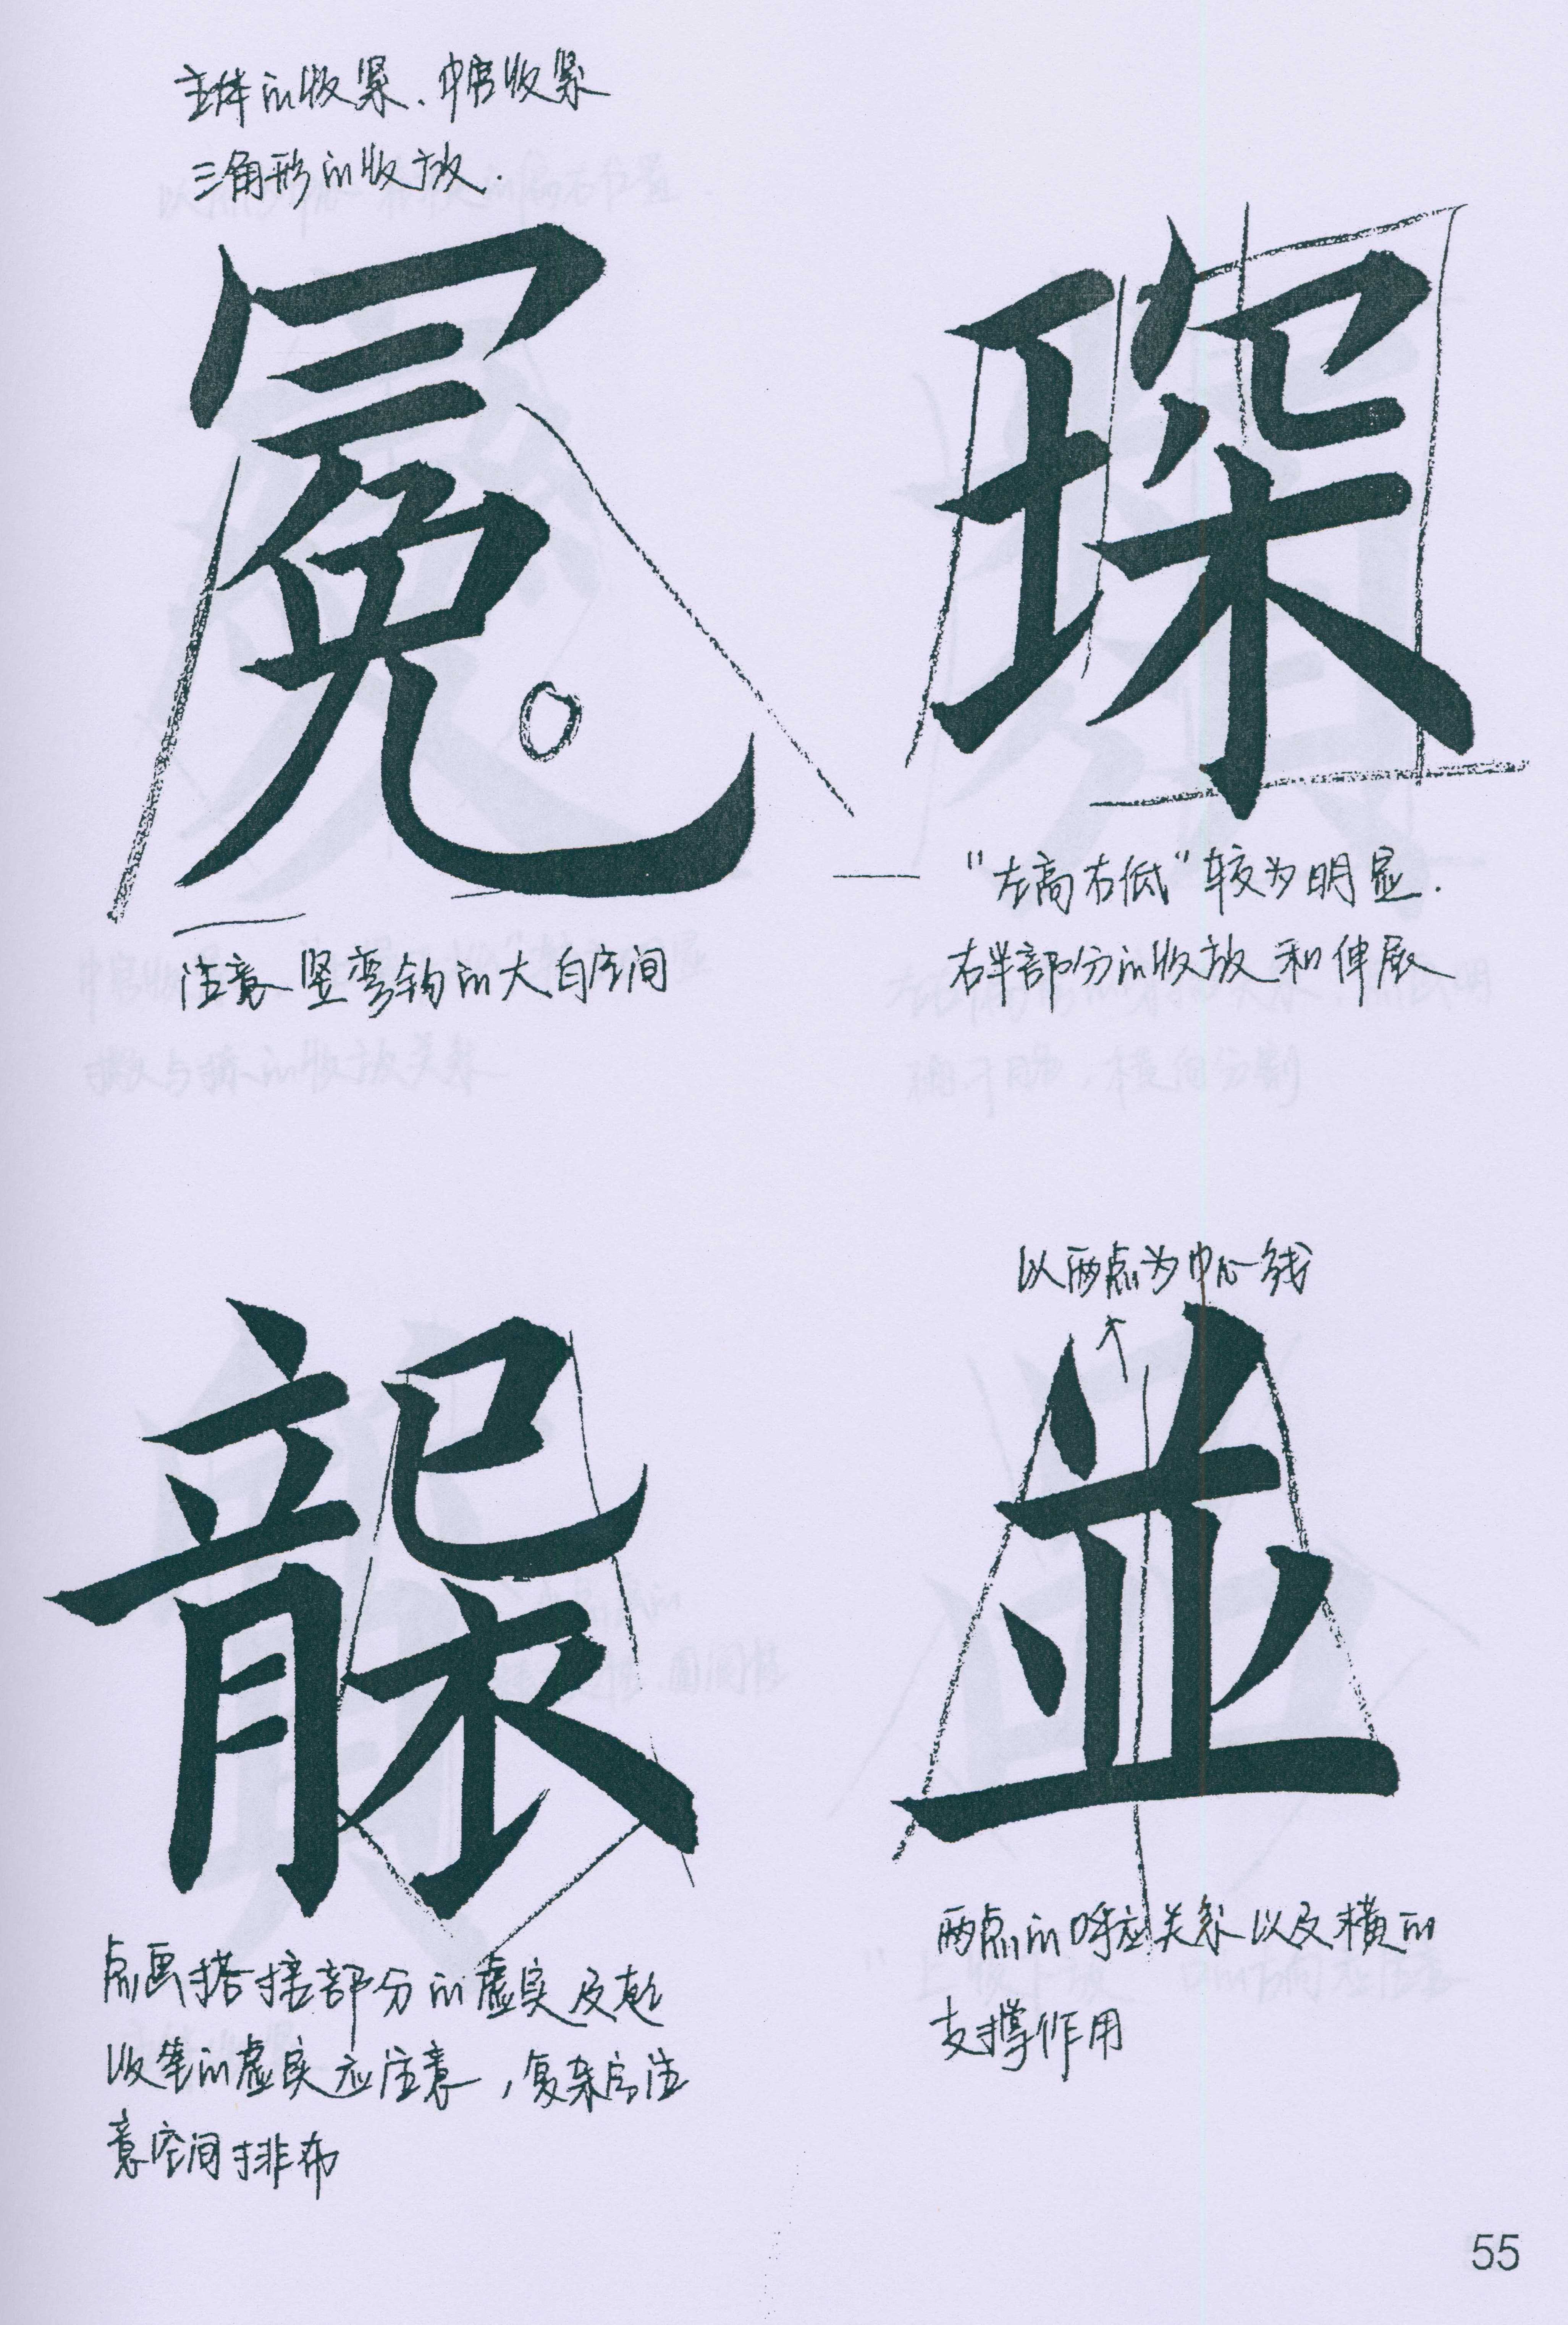 主体的收紧、中宫收紧
三角形的收放.
冕
注意竖弯钩的大白空间
琛
"左高右低"较为明显.
右半部分的收放和伸展
龒
点画搭接部分的虚实及起
收笔的虚实应注意，复杂字注
意空间排布
以两点为中心线
並
两点的呼应关系以及横的
支撑作用
55